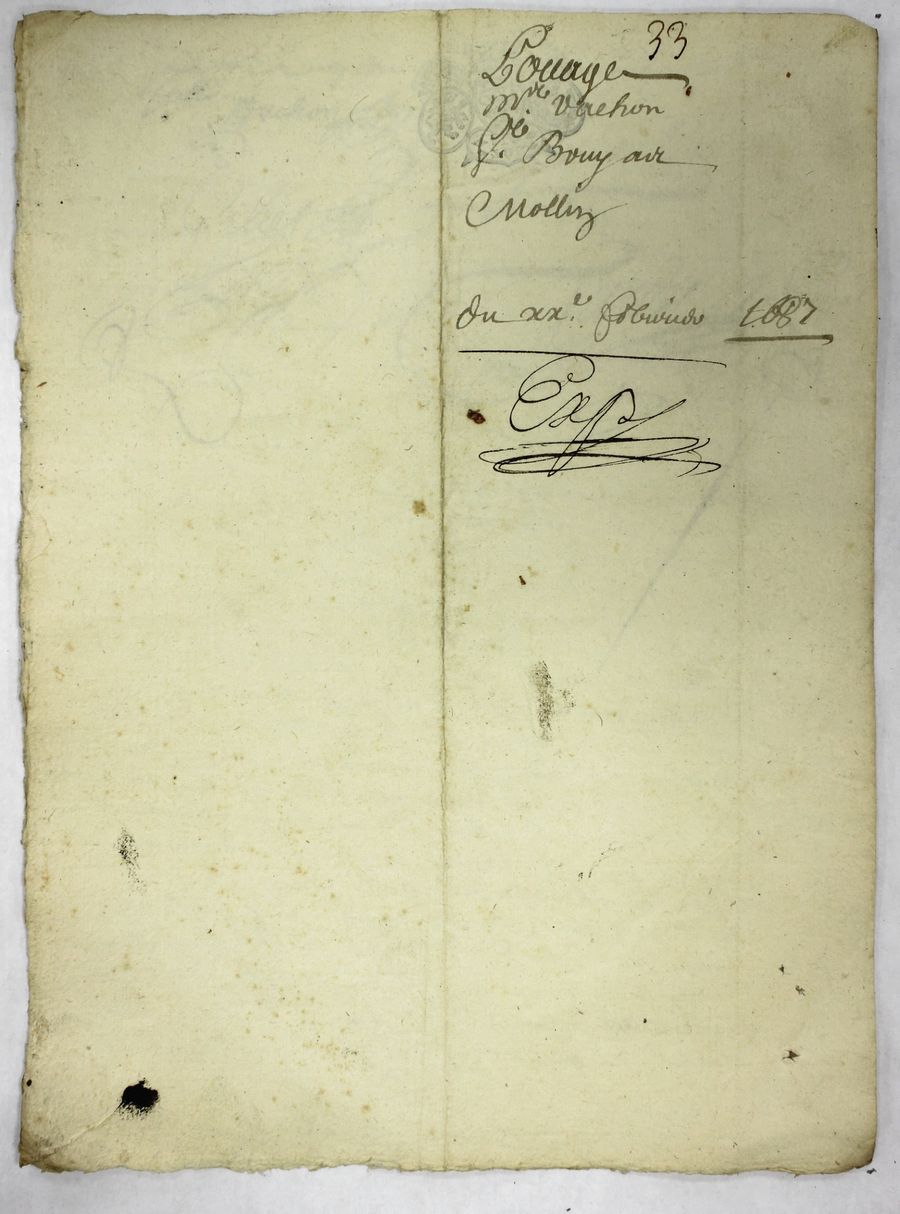 33
Louage
mre Vachon
Sr. Bouy
Mollin
Du xxe. febvrier 1687
Exp